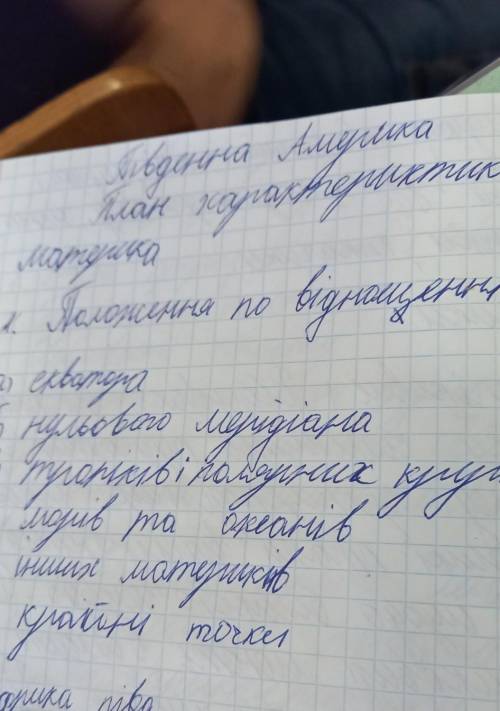 Південна Америка
План характеристик
материка
1. Положення по відношенню
а) екватора
б нульового мерідіана
тропіків і полярних круг
морів та океанів
інших материків
крайні точки